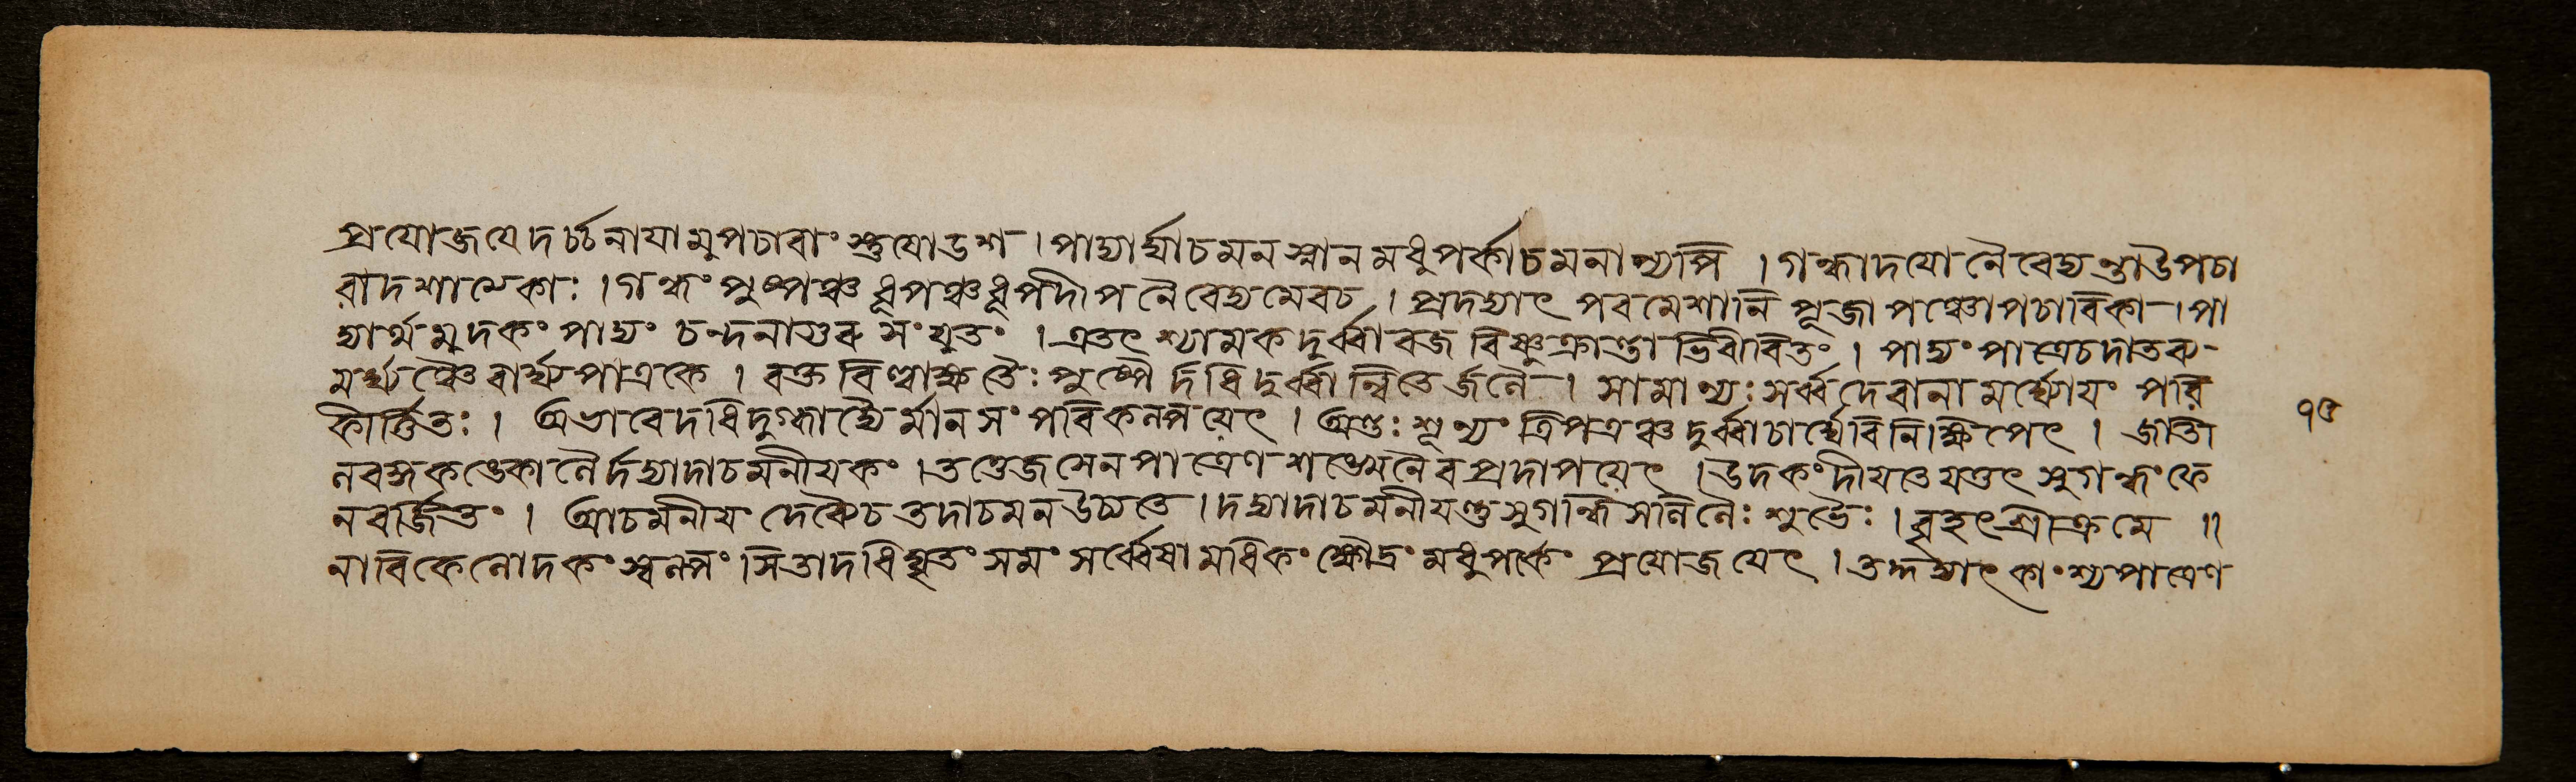 প্রযোজযেদর্চ্চনাযামুপচারাংস্তুষোডশ । পাদ্যার্ঘ্যাচমনস্নানমধুপর্কাচমনান্যপি । গন্ধাদযোনৈবেদ্যান্তাউপচা
রাদশাত্মকাঃ । গন্ধং পুষ্পঞ্চধূপঞ্চধূপদীপনৈবেদ্যমেবচ । প্রদদ্যাৎ পরমেশানি পূজাপঞ্চোপচারিকা । পা
দ্যার্থমুদকং পাদ্যং চন্দনাগুরু সংযুতং । এতৎ শ্যামকদুর্ব্বাব্জ বিষ্ণুক্রান্তাভিরীরিতং । পাদ্যং পাত্রেচদাতব্য
মর্ঘ্যঞ্চৈবার্ঘ্যপাত্রকে । রক্তবিল্বাক্ষতৈঃ পুষ্পৈর্দধিদুর্ব্বান্বিতের্জনৈ । সামান্যঃ সর্ব্বদেবানামর্ঘ্যোযং পরি
কীর্ত্তিতঃ । অভাবেদধিদুগ্ধাদ্যৈর্মানসং পরিকল্পয়েৎ । অন্তঃ শূন্যং ত্রিপত্রঞ্চ দুর্ব্বাচার্ঘ্যেবিনিক্ষিপেৎ । জাতী
লবঙ্গকঙ্কোলৈর্দদ্যাদাচমনীযকং । তত্তেজসেনপাত্রেণ শঙ্খেনৈবপ্রদাপয়েৎ । উদকংদীযতেযত্তৎ সুগন্ধংফে
নবর্জ্জিতং । আচমনীযং দেবৈচ তদাচমনউচ্যতে । দদ্যাদাচমনীযন্তুসুগন্ধিসলিলৈঃ শুভৈঃ । বৃহৎশ্রীক্রমে ॥
নারিকেলোদকং স্বল্পং । সিতাদধিঘৃতং সমং সর্ব্বেষামধিকং ক্ষৌদ্রং মধুপর্কং প্রযোজযেৎ । তদ্দদ্যাৎ কাংশ্যপাত্রেণ
৭৫